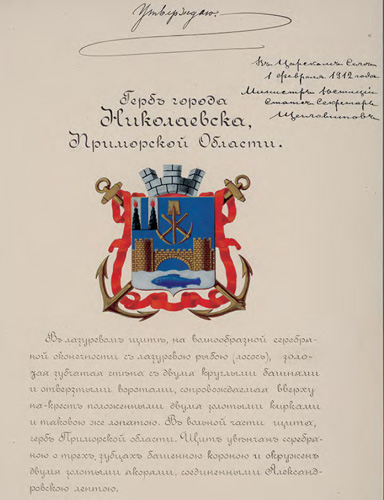 Утверждаю.
Въ Царскомъ Селѣ
1 февраля 1912 года
Министръ Юстиціи
Статсъ-Секретарь
Щегловитовъ
Гербъ города
Николаевска,
Приморской Области.
Въ лазуревомъ щитѣ, на волнообразной серебря-
ной оконечности съ лазуревою рыбою (лосось), золо-
тая зубчатая стѣна съ двумя круглыми башнями
и отверзтыми воротами, сопровождаемая вверху
на-крестъ положенными двумя золотыми кирками
и таковою же лопатою. Въ вольной части щита,
гербъ Приморской области. Щитъ увѣнчанъ серебря-
ною о трехъ зубцахъ башенною короною и окруженъ
двумя золотыми якорями, соединенными Александ-
ровскою лентою.